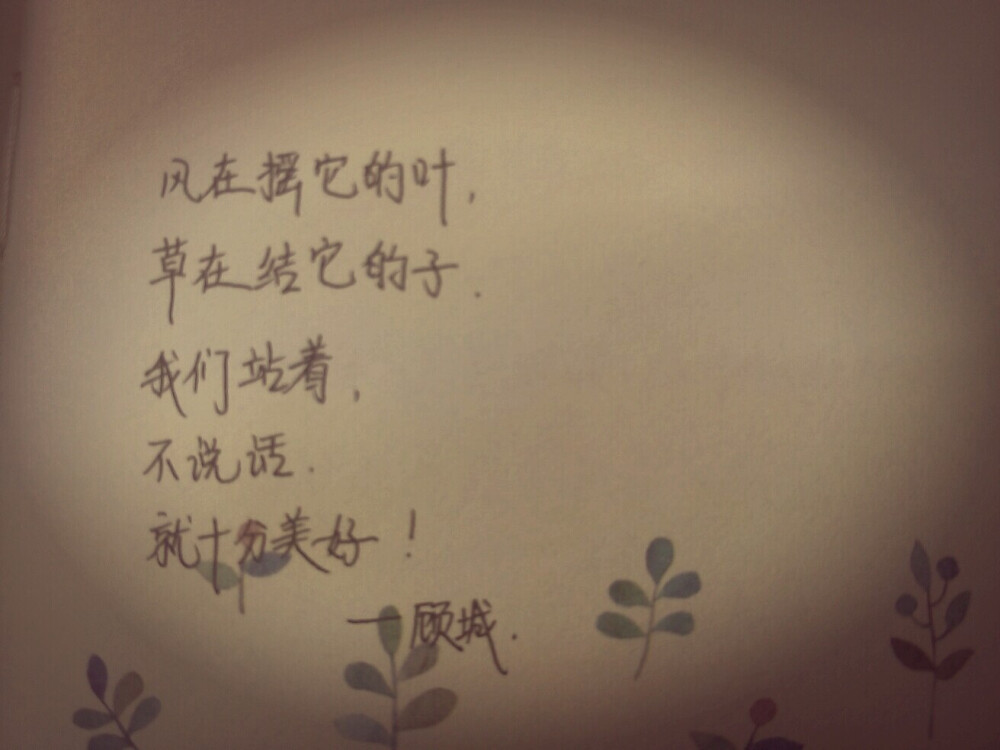 风在摇它的叶,
草在结它的子.
我们站着,
不说话.
就十分美好!
—顾城.